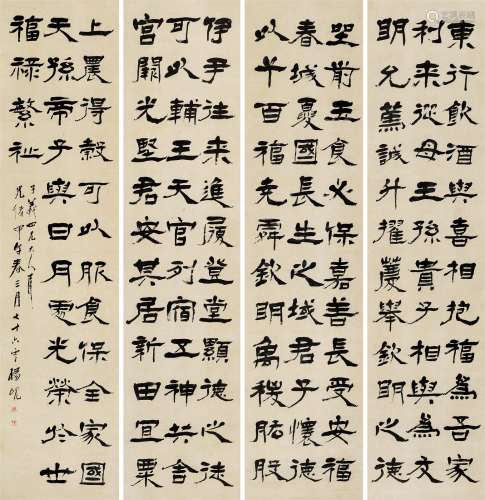 東行飲酒與喜相抱福為吾家
利來從母王孫貴子相與為友
明允篤誠升擢薦舉欽明之德
坐前玉食必保嘉善長受安福
春城夏國長生之域君子懷德
以千百福堯舜欽明禹稷肱股
伊尹往來進履登堂顯德之徒
可以輔王天官列宿五神共舍
宮闕光堅君安其居新田宜粟
上農得穀可以服食保全家國
天孫帝子與日月處光榮於世
福祿繁祉
子義四兄大人屬
光緒甲午春三月七十六叟楊峴